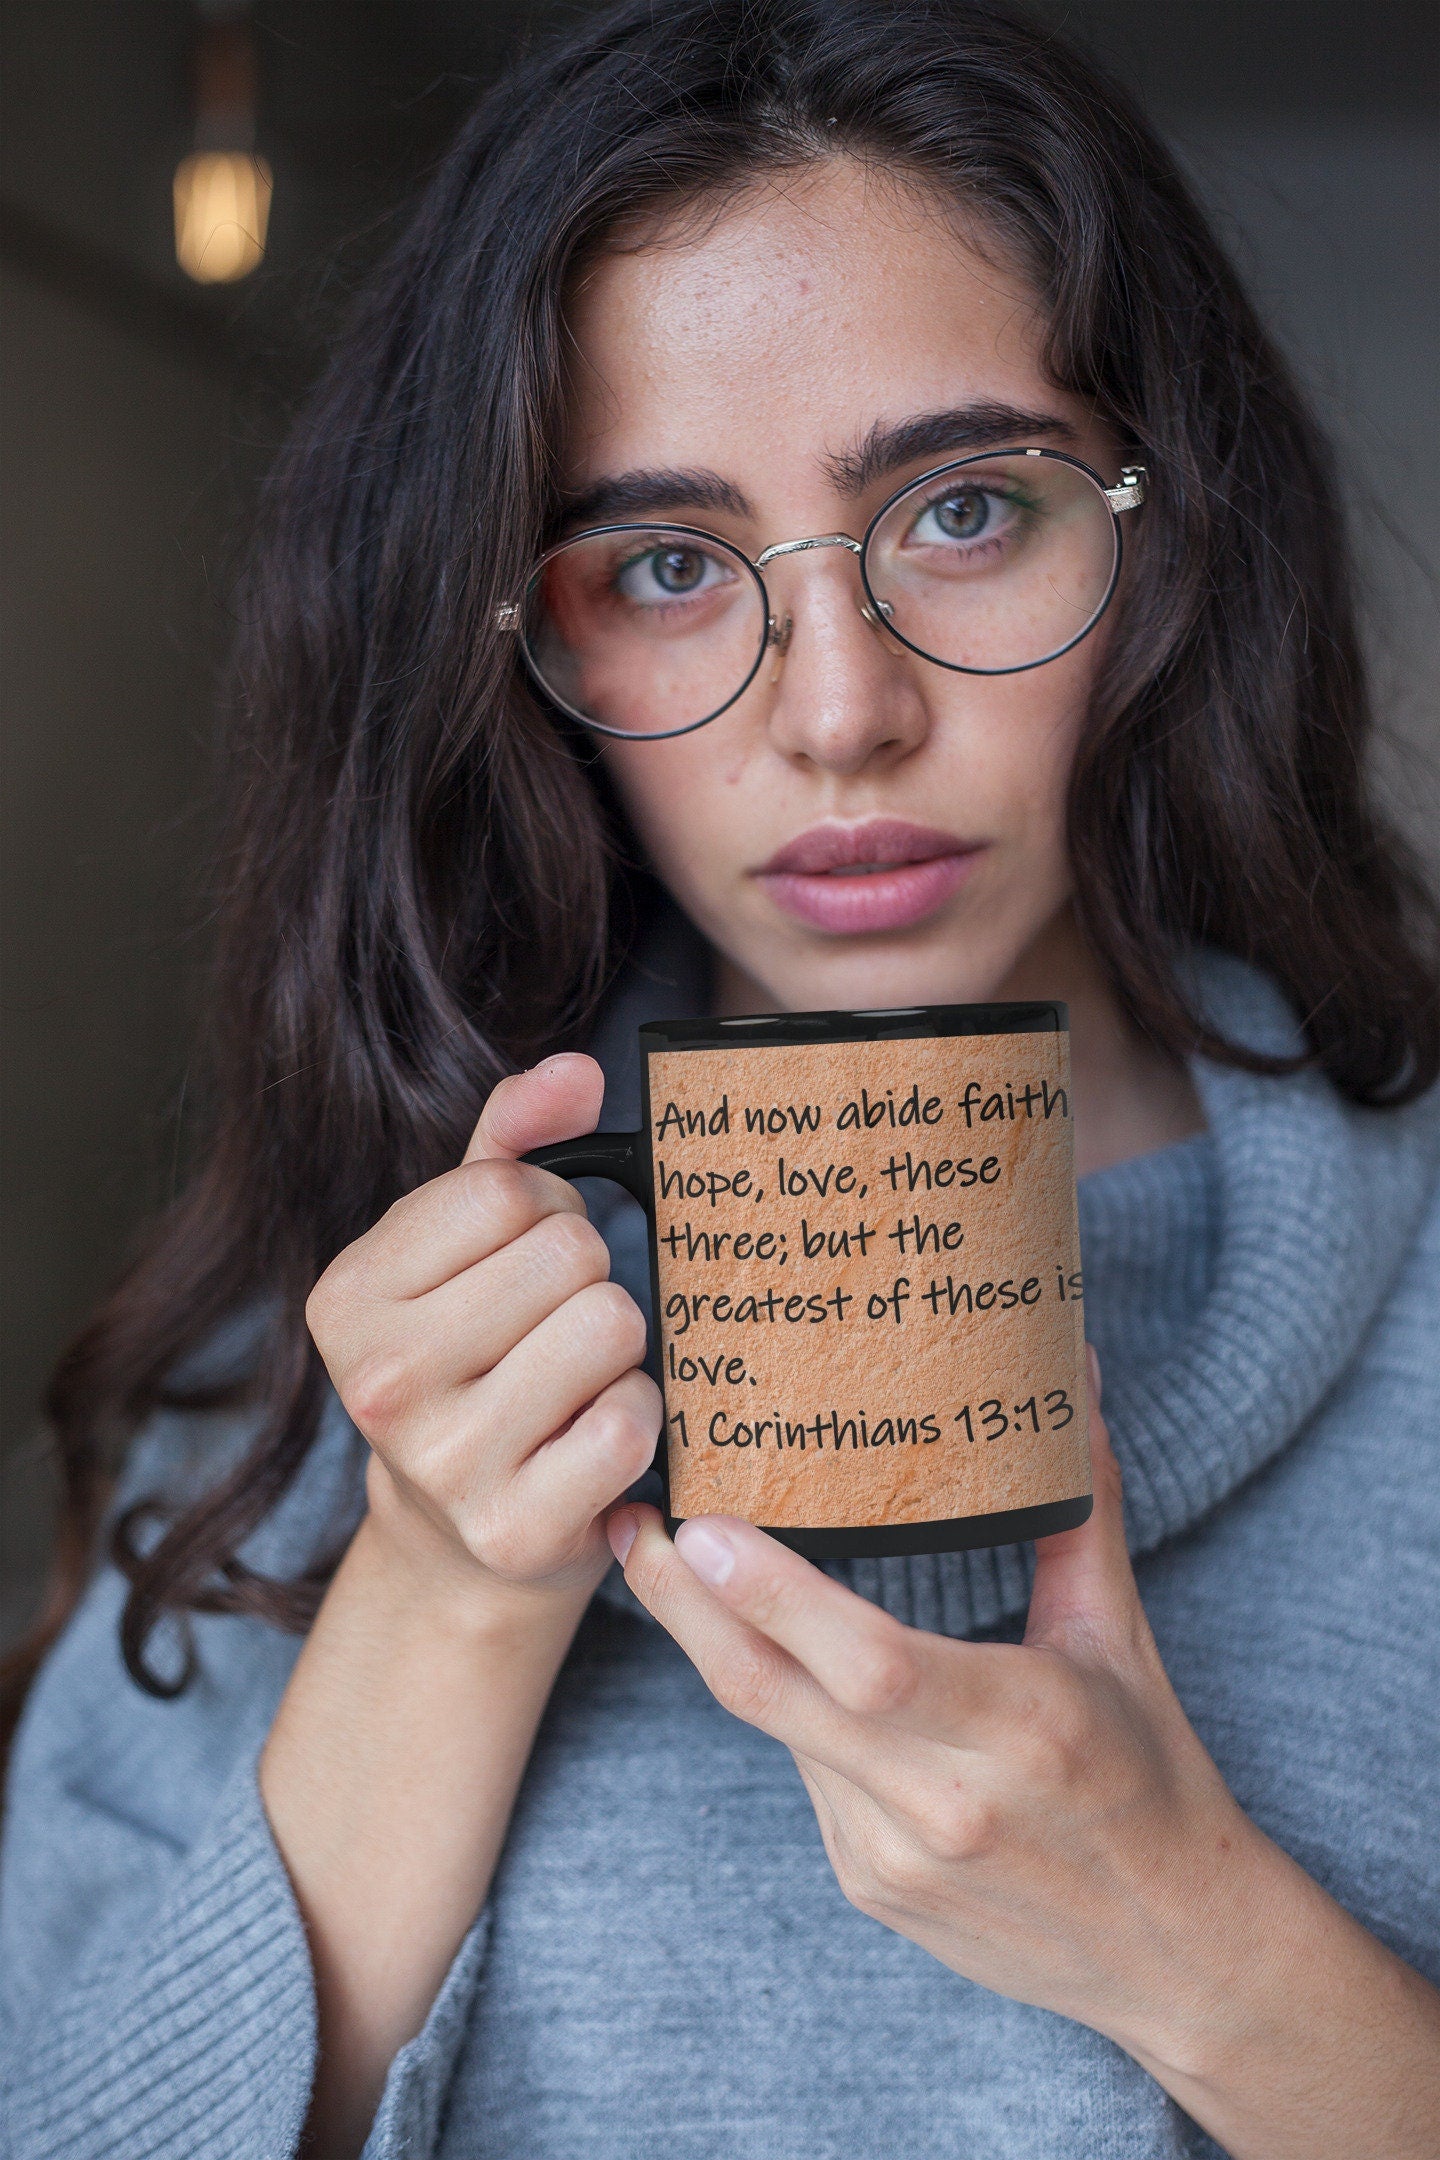 And now abide faith,
hope, love, these
three; but the
greatest of these is
love.
1 Corinthians 13:13